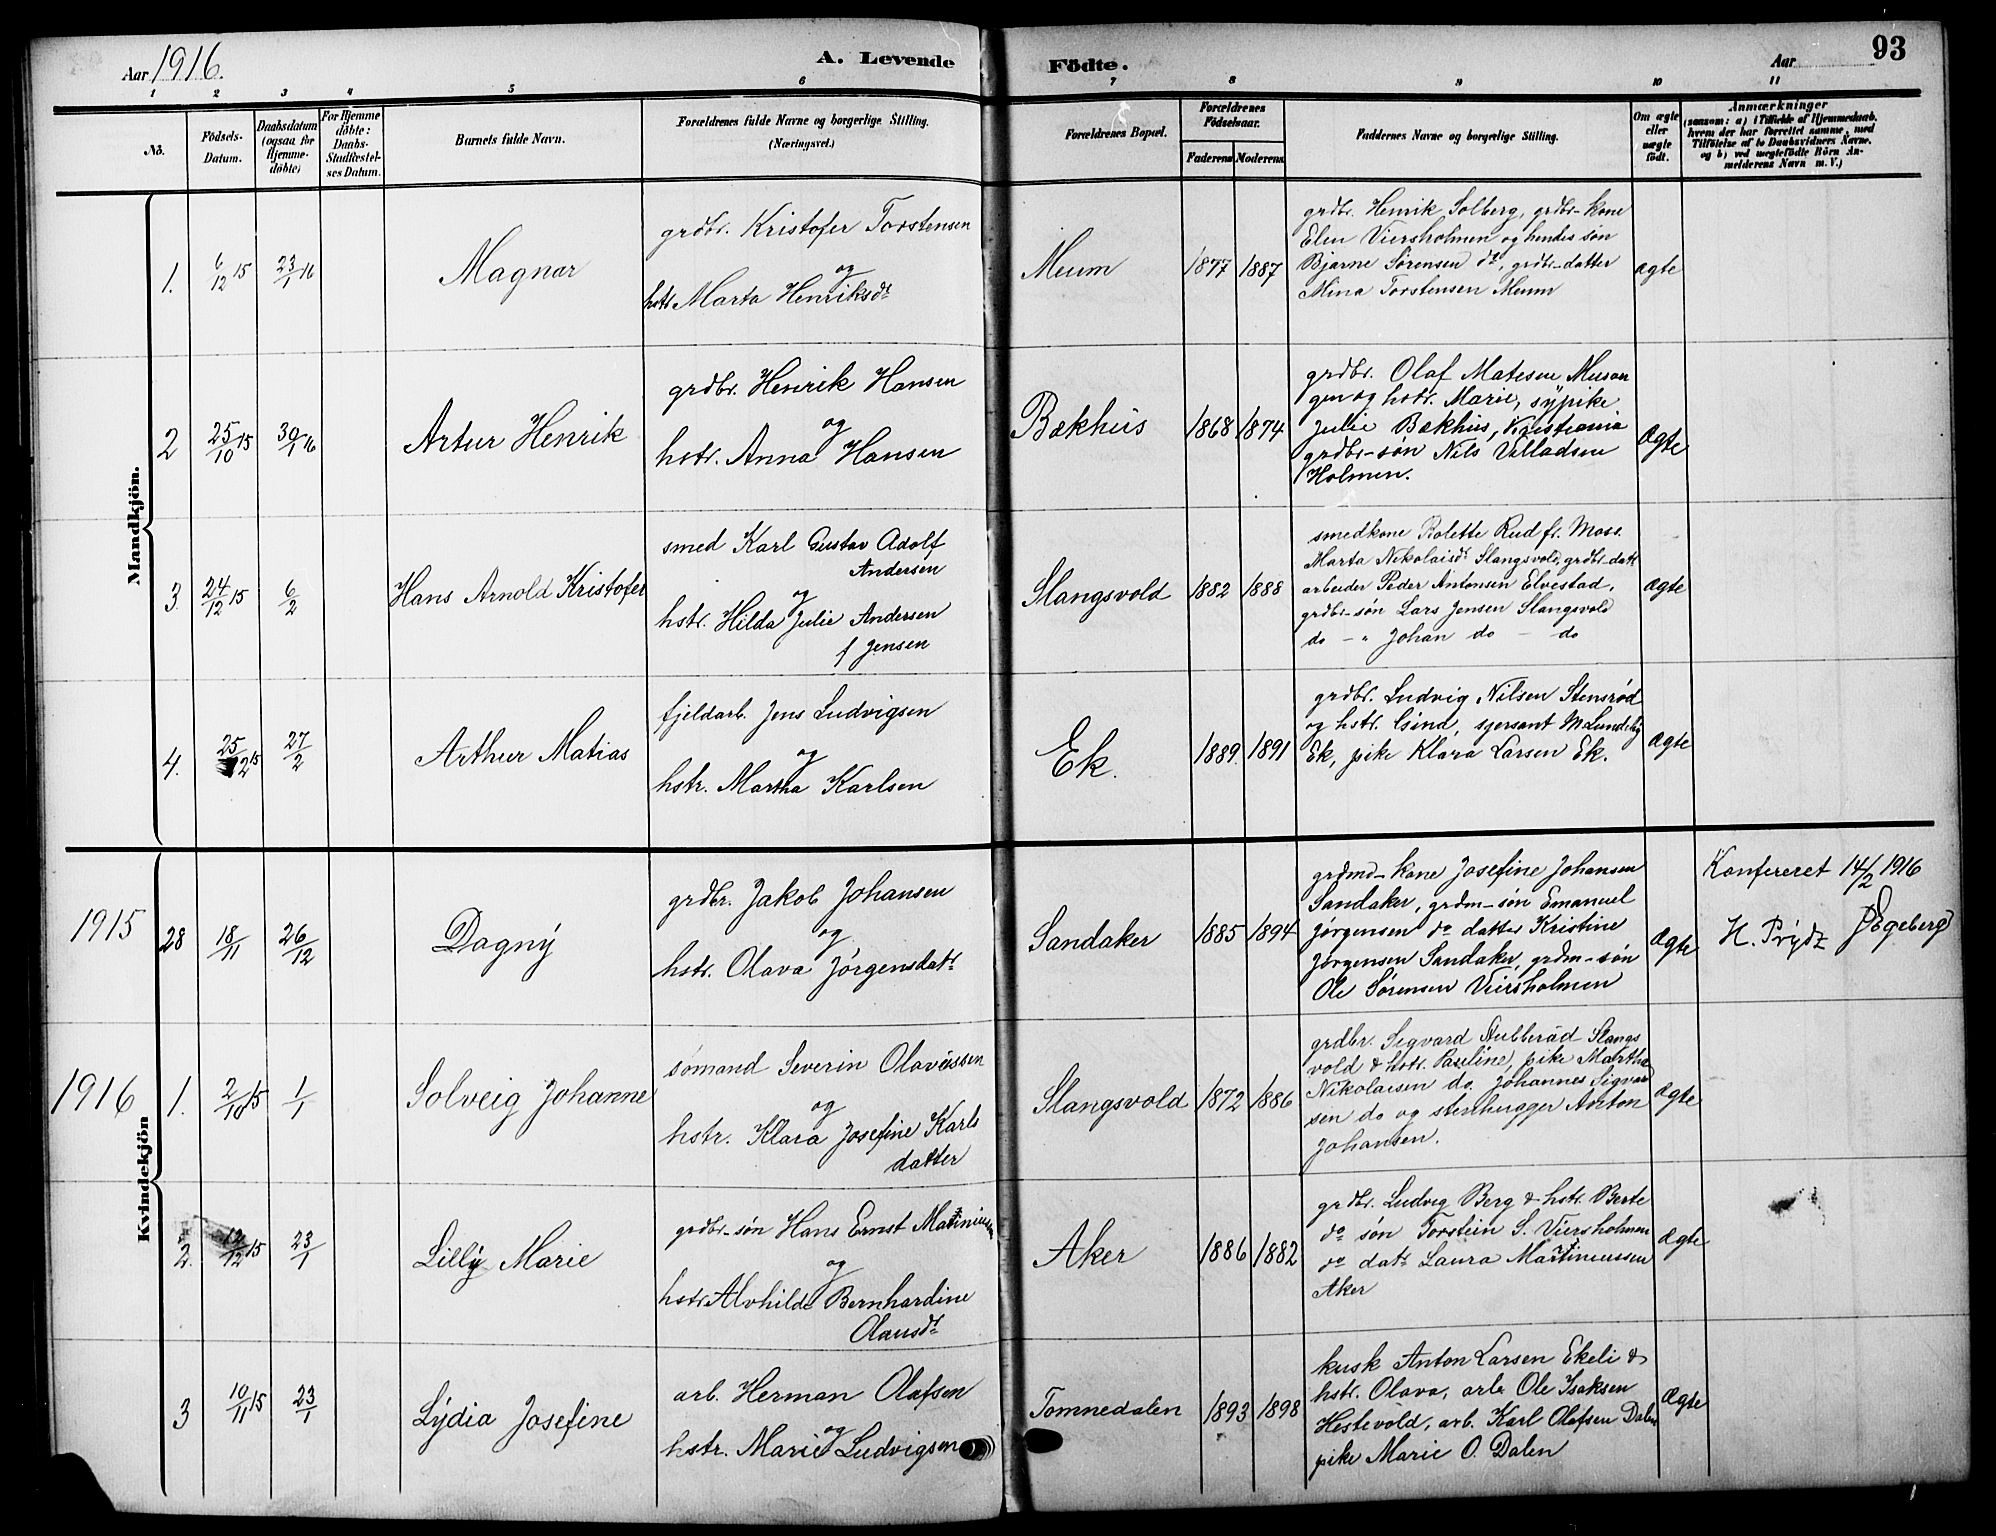 Aar 1916.
A. Levende Födte.
Aar
93
1 2 3 4 5 6 7 8 9 10 11
No.
Födsels-
Datum.
Daabsdatum
(ogsaa for
Hjemme-
döbte)
For Hjemme
döbte:
Daabs-
Stadfæstel-
ses Datum.
Barnets fulde Navn.
Forældrenes fulde Navne og borgerlige Stilling.
(Næringsvei.)
Forældrenes Bopæl.
Forældrenes
Födselsaar.
Faderens Moderens
Faddernes Navne og borgerlige Stilling.
Om ægte
eller
uægte
födt.
Anmærkninger
(saasom: a) i Tilfælde af Hjemmedaab,
hvem der har forrettet samme, med
Tilföielse af to Daabsvidners Navne.
og b) ved uægtefödte Börn An-
melderens Navn m. V.)
Mandkjön.
1. 6/12 15 23/1 16
Magnar
grdbr. Kristofer Torstensen
og
hstr. Marta Henriksdt
Meum
1877 1887
grdbr. Henrik Solberg, grdbr-kone
Elen Viersholmen og hendes søn
Bjarne Sørensen do, grdbr-datter
Mina Torstensen Meum
ægte
2 25/10 15 30/1 16
Artur Henrik
grdbr. Henrik Hansen
og
hstr. Anna Hansen
Bækhus
1868 1874
grdbr. Olaf Matesen
gen og hstr. Marie, sypike
Julie Bækhus, Kristiania
grdbr-søn Nils Villadsen
Holmen.
ægte
3. 24/12 15 6/2
Hans Arnold Kristofer
smed Karl Gustav Adolf
Andersen
og
hstr. Hilda Julie Andersen
f Jensen
Slangsvold
1882 1888
smedkone Rolette Rud fr. Moss.
Marta Nikolaisdt Slangsvold, grdbr-datt
arbeider Peder Antonsen Elvestad,
grdbr-søn Lars Jensen Slangsvold
do - " Johan do - do
ægte
4. 25/12 15 27/2
Arthur Matias
fjeldarb. Jens Ludvigsen
og
hstr. Martha Karlsen
Ek.
1889. 1891
grdbr. Ludvig Nilsen Stensrød
og hstr. sjersant M. Lundeby
Ek, pike Klara Larsen Ek.
ægte
Kvindekjön
1915
28 18/11 26/12
Dagny
grdbr. Jakob Johansen
og
hstr. Olava Jørgensdatr
Sandaker
1885 1894
grdmd-kone Josefine Johansen
Sandaker, grdm-søn Emanuel
Jørgensen do datter Kristine
Jørgensen Sandaker, grdm-søn
Ole Sørensen Viersholmen
ægte
Konfereret 14/2 1916
H. Prydz Egeberg
1916
1. 2/10 15 1/1
Solveig Johanne
sømand Severin Olavesen
og
hstr. Klara Josefine Karls
datter
Slangsvold
1872 1886
grdbr. Sigvard Stubberød Slangs
vold & hstr. Pauline, pike Martha
Nikolaisen do. Johannes Sigvard
sen do og stenhugger Anton
Johansen.
ægte
2. 12/12 15 23/1
Lilly Marie
grdbr-søn Hans Ernst Martiniussen
og
hstr Alvhilde Bernhardine
Olausdt
Aker
1886 1882
grdbr. Ludvig Berg & hstr. Berte
do søn Torstein S. Viersholmen
do datr Laura Martiniussen
Aker
ægte
3 10/11 15 23/1
Lydia Josefine
arb. Herman Olafsen
og
hstr. Marie Ludvigsen
Tomnedalen
1893 1898
kusk Anton Larsen Ekeli &
hstr. Olava, arb. Ole Isaksen
Hestevold, arb. Karl Olafsen Dalen
pike Marie O. Dalen
ægte